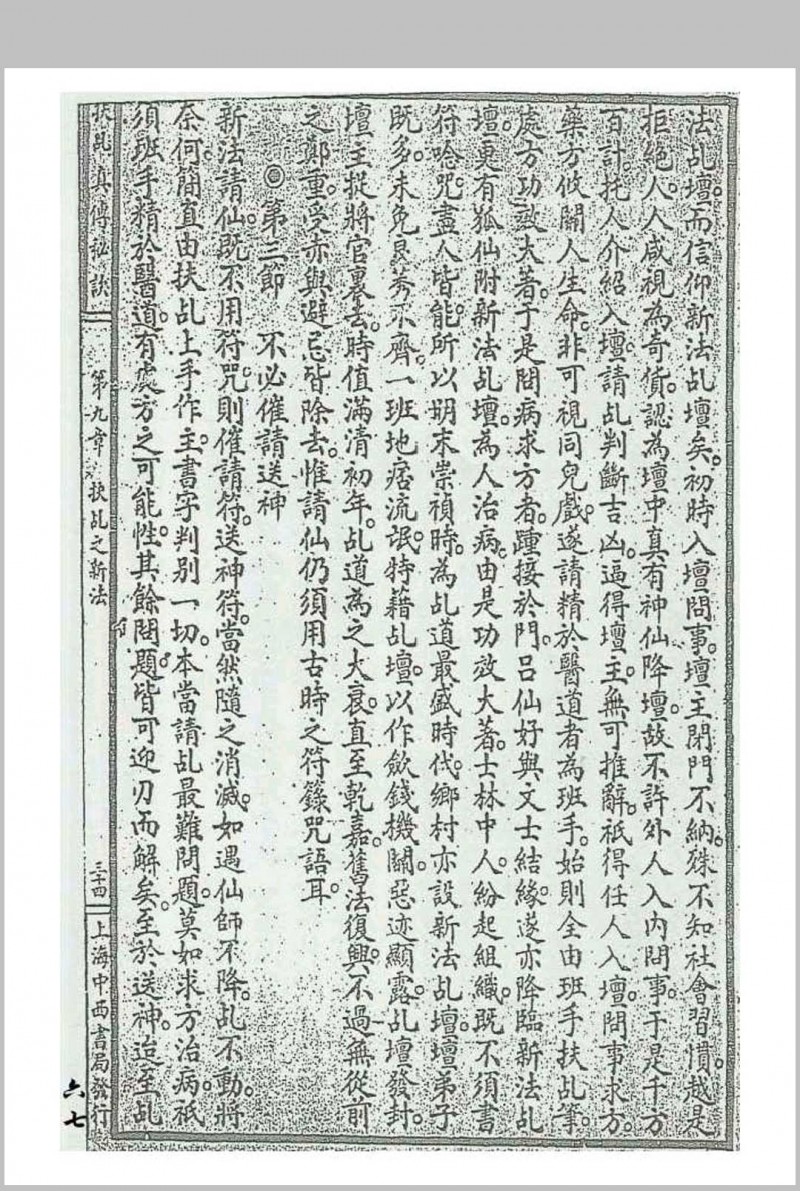 法乩壇。而信仰新法乩壇矣。初時入壇問事。壇主閉門不納。殊不知社會習慣。越是
拒絕。人人咸視為奇貨。認為壇中真有神仙降壇。故不許外人入內問事。于是千方
百計。托人介紹入壇。請乩判斷吉凶。逼得壇主無可推辭。祇得任人入壇。問事求方。
藥方攸關人生命。非可視同兒戲。遂請精於醫道者為班手。始則全由班手扶乩筆。
處方功效大著。于是問病求方者。踵接於門。呂仙好與文士結緣。遂亦降臨新法乩
壇。更有狐仙附新法乩壇。為人治病。由是功效大著。士林中人。紛起組織。既不須書
符唸咒。盡人皆能。所以明末崇禎時。為乩道最盛時代。鄉村亦設新法乩壇。壇弟子
既多。未免良莠不齊。一班地痞流氓。特藉乩壇。以作斂錢機關。惡迹顯露。乩壇發封。
壇主捉將官裏去。時值滿清初年。乩道為之大衰。直至乾嘉。舊法復興。不過無從前
之鄭重。受赤與避忌皆除去。惟請仙仍須用古時之符籙咒語耳。
◎第三節　不必催請送神
新法請仙。既不用符咒。則催請符。送神符。當然隨之消滅。如遇仙師不降。乩不動。將
奈何。簡直由扶乩上手作主。書字判別一切。本當請乩最難問題。莫如求方治病。祇
須班手精於醫道。有處方之可能性。其餘問題。皆可迎刃而解矣。至於送神。迨至乩
扶乩真傳秘訣
第九章　扶乩之新法
三十四
上海中西書局發行
六七